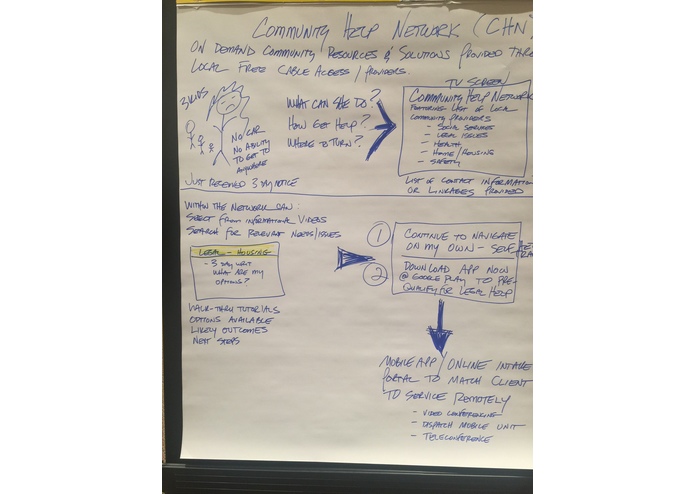 COMMUNITY HELP NETWORK (CHN)
ON DEMAND COMMUNITY RESOURCES & SOLUTIONS PROVIDED THRO
LOCAL FREE CABLE ACCESS / PROVIDERS.
3 KIDS
NO CAR
NO ABILITY
TO GET TO
ANYWHERE
JUST RECEIVED 3 DAY NOTICE
WHAT CAN SHE DO?
HOW GET HELP?
WHERE TO TURN?
TV SCREEN
COMMUNITY HELP NETWORK
FEATURING LIST OF LOCAL
COMMUNITY PROVIDERS
- SOCIAL SERVICES
- LEGAL ISSUES
- HEALTH
- HOME/HOUSING
- SAFETY
LIST OF CONTACT INFORMATIO
OR LINKAGES PROVIDED
WITHIN THE NETWORK CAN:
SELECT FROM INFORMATIONAL VIDEOS
SEARCH FOR RELEVANT NEEDS/ISSUES
LEGAL - HOUSING
- 3 DAY WRIT
WHAT ARE MY
OPTIONS?
WALK-THRU TUTORIALS
OPTIONS AVAILABLE
LIKELY OUTCOMES
NEXT STEPS
1
CONTINUE TO NAVIGATE
ON MY OWN - SELF
2
DOWNLOAD APP NOW
@ GOOGLE PLAY TO PRE-
QUALIFY FOR LEGAL HELP
MOBILE APP / ONLINE INTAKE
PORTAL TO MATCH CLIENT
TO SERVICE REMOTELY
- VIDEO CONFERENCING
- DISPATCH MOBILE UNIT
- TELECONFERENCE